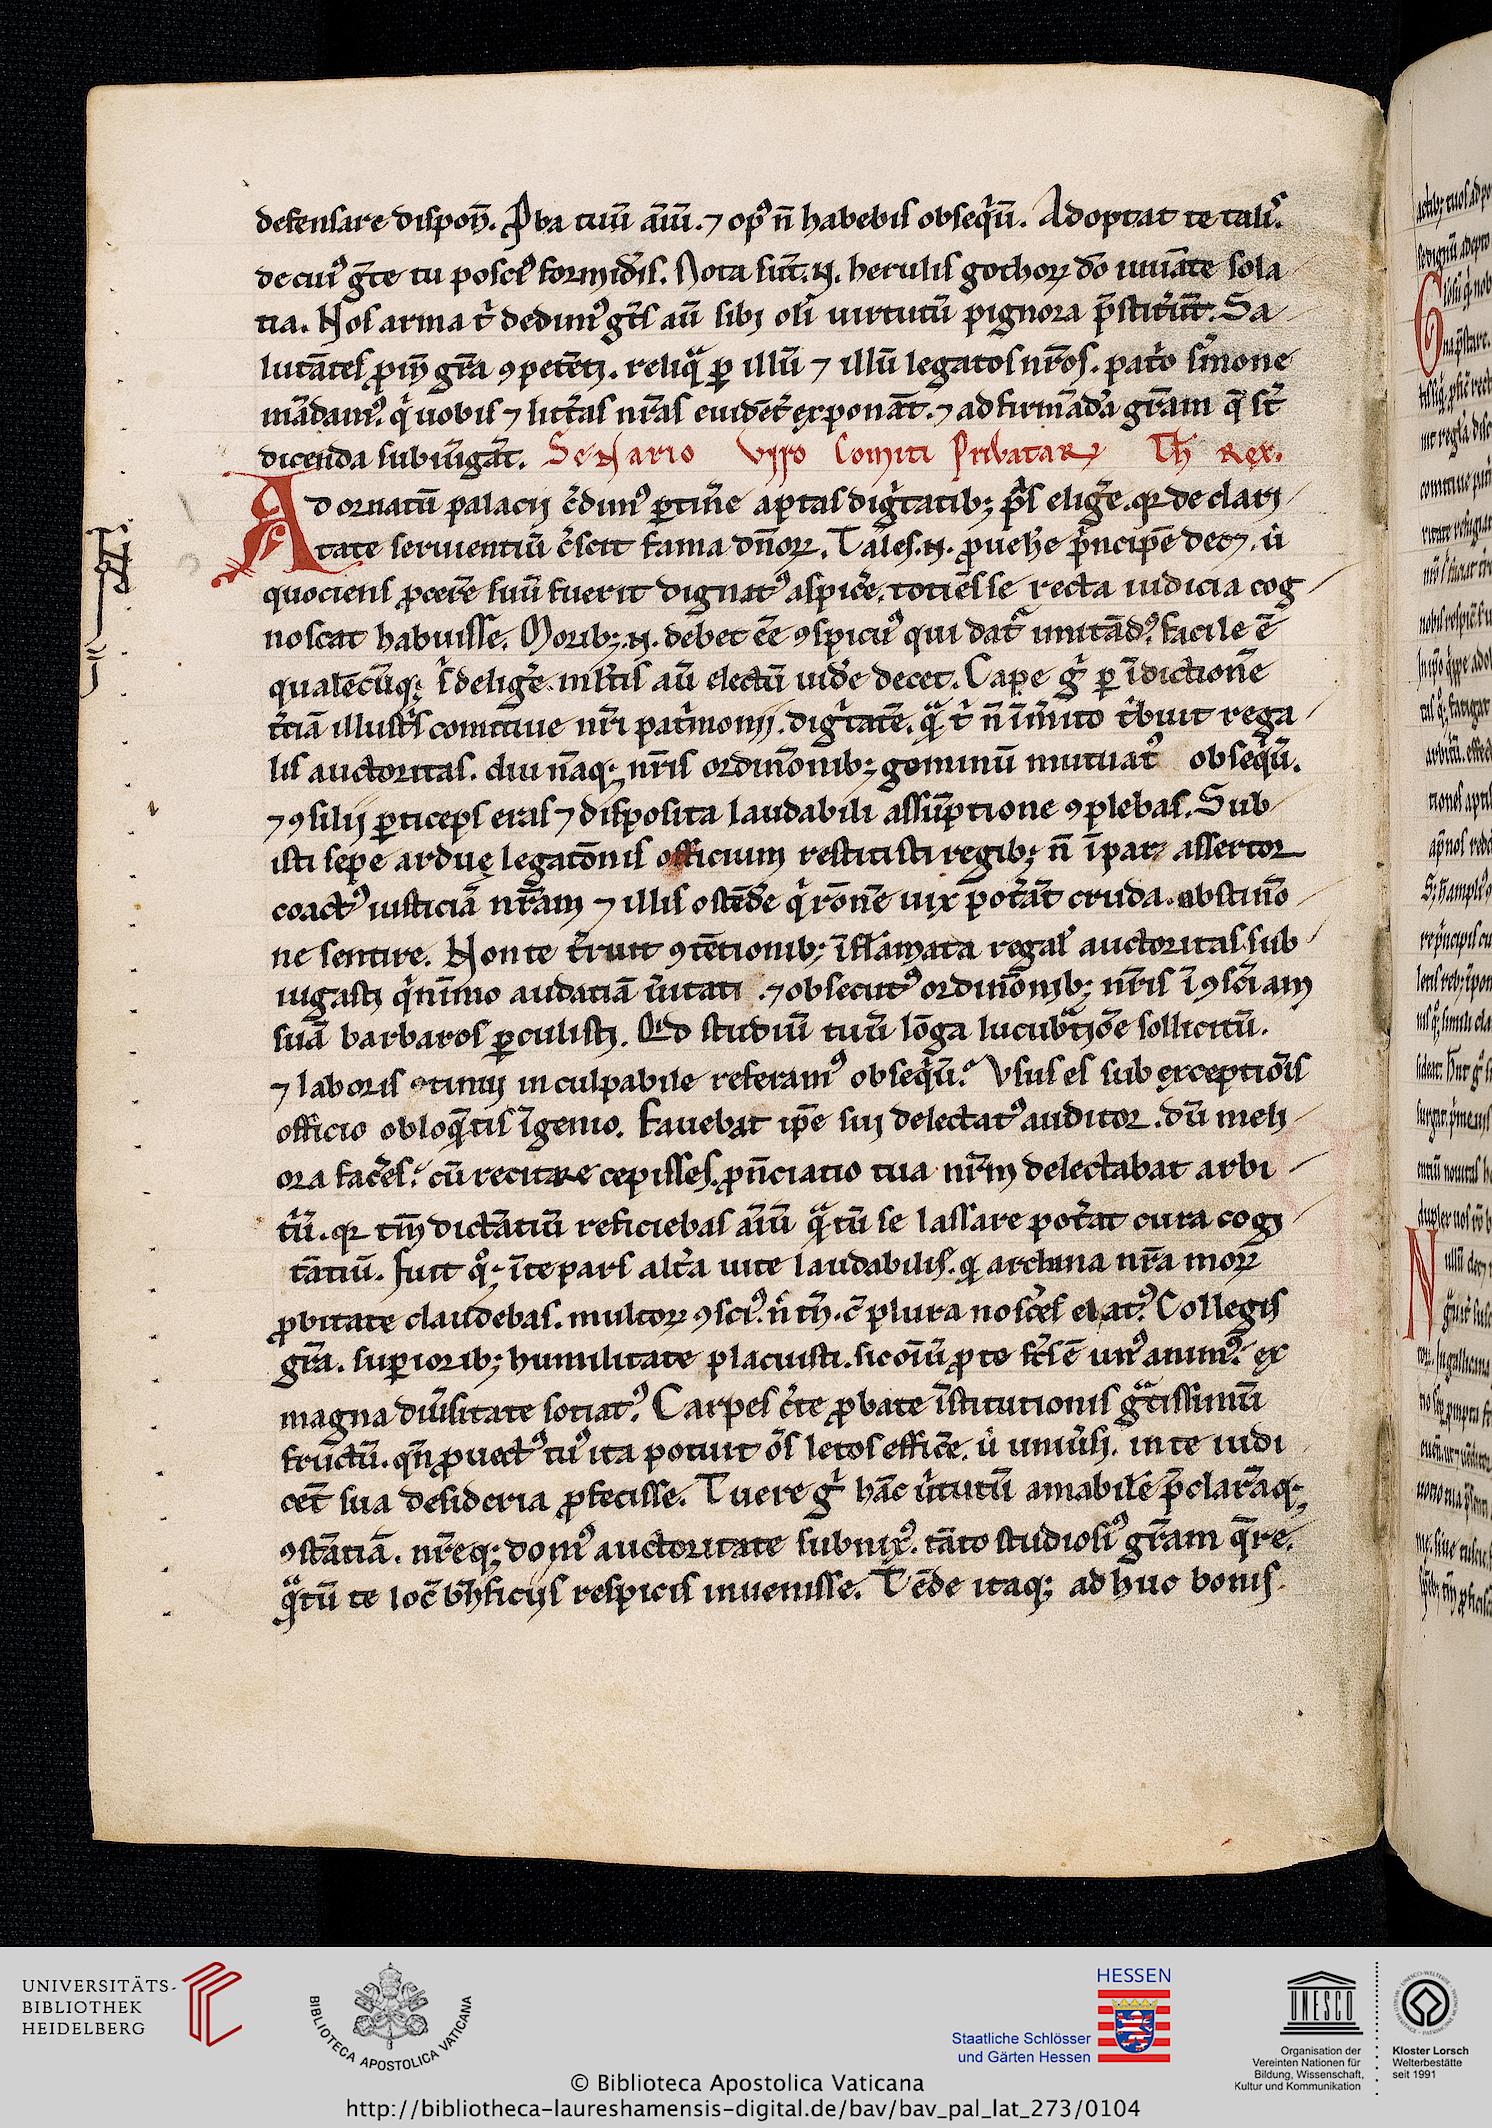 defensare dispoñ. ꝓba tuū aīm̄. ⁊ opꝰ n̄ habebis obseqͥū. Adoptat te talis.
de cuiꝰ gn̄te tu posciꝰ formidꝛis. Nota sūt.N. herulis gothoꝝ dō iuuāte sola
tia. Nos arma tͥ dedimꝰ gn̄ts aū sibi oli uirtutū pignora p̄stiterūt. Sa
lutātes ꝓin̄ gr̄a ꝯpetēti. reliqͣ ꝑ illū ⁊ illū legatos nr̄os. patͥo sīmone
mādamꝰ. qͥ uobis ⁊ litt̄as nr̄as euidēt̄ exponāt. ⁊ ad firmādā gr̄am q̄ st̄
dicenda subiūgāt. SeNario viro Comiti Privataꝝ Th Rex.
Ad ornatū palacii c̄dimꝰ ꝑtin̄e aptas digͥtatibꝫ p̄s eliḡe. qꝛ de clari
tate seruientiū c̄scit fama dn̄oꝝ. Tales.N. ꝓuehe p̄ncipē decꝫ. ū
quociens ꝓcere suū fuerit dignatꝰ aspic̄e. totiēs se recta iudicia cog
noscat habuisse. Moribꝫ.N. debet eē ꝯspicuꝰ qui datͬ imitādꝰ. facile ē
qualēcūqꝫ s̄ deliḡe. in lr̄is aū electū uid̄e decet. Cape gͥ ꝑ īdictionē
t̄tiā illustͥs comitiue nr̄i patͥmonii. digͥtatē. qͣ tͥ n̄ īm̄ito tͥbuit rega
lis auctoritas. diu nāqꝫ nr̄is ordinōnibꝫ geminū mutuatꝰ obseqͥū.
⁊ ꝯsilii ꝑticeps eras ⁊ disposita laudabili assūptione ꝯplebas. Sub
isti sepe arduę legatōnis officium restitisti regibꝫ n̄ īpar assertor
coactꝰ iusticiā nr̄am ⁊ illis ostēd̄e qͥ rōnē uix pot̄āt cruda. obstinō
ne sentire. Non te t̄ruit ꝯtētionibꝫ īflāmata regal̄ auctoritas. sub
iugasti qͥnīmo audatiā ūitati . ⁊ obsecutꝰ ordinōnibꝫ nr̄is ī ꝯsciam
suā barbaros ꝑculisti. Qͥd studiū tuū lōga lucubͣtiōe sollicitū.
⁊ laboris ꝯtinui inculpabile referamꝰ obseqͥū. Vsus es sub exceptiōis
officio obloq̄tis īgenio. fauebat ip̄e sui delectatꝰ auditor. dū meli
ora fac̄es. cū recitare cepisses. ꝓnūciatio tua nr̄m delectabat arbi
tͥū. qꝛ tm̄ dictātiū reficiebas aīm̄ qͣtū se lassare pot̄at cura cogi
tātiū. fuit qͦqꝫ īte pars alt̄a uite laudabilis. qꝛ archana nr̄a moꝝ
ꝓbitate claudebas. multoꝝ ꝯsciꝰ. n̄ tn̄. c̄ plura nosc̄es elatꝰ. Collegis
gr̄a. superioribꝫ humilitate placuisti. sic oīū ꝓ te fc̄s ē unꝰ animꝰ. ex
magna dīusitate sotiatꝰ. Carpes c̄te ꝓbate īstitutionis gͣtissimū
fructū. qn̄ ꝓuectꝰ tuꝰ ita potuit ōs letos effic̄e. ū uniūsi. in te iudi
cēt sua desideria ꝓfecisse. Tuere gͥ hāc ūtutū amabilē p̄clarāqꝫ
ꝯstātiā. nr̄eqꝫ domꝰ auctoritate subnixꝰ. tāto studiosiꝰ gr̄am q̄re.
qͣtū te loc̄ bn̄ficiis respicis inuenisse. Tēde itaqꝫ ad huc bonis.
UNIVERSITÄTS-
BIBLIOTHEK
HEIDELBERG
BIBLIOTECA APOSTOLICA VATICANA
HESSEN
Staatliche Schlösser
und Gärten Hessen
UNESCO
Organisation der
Vereinten Nationen für
Bildung, Wissenschaft,
Kultur und Kommunikation
Kloster Lorsch
Welterbestätte
seit 1991
© Biblioteca Apostolica Vaticana
http://bibliotheca-laureshamensis-digital.de/bav/bav_pal_lat_273/0104